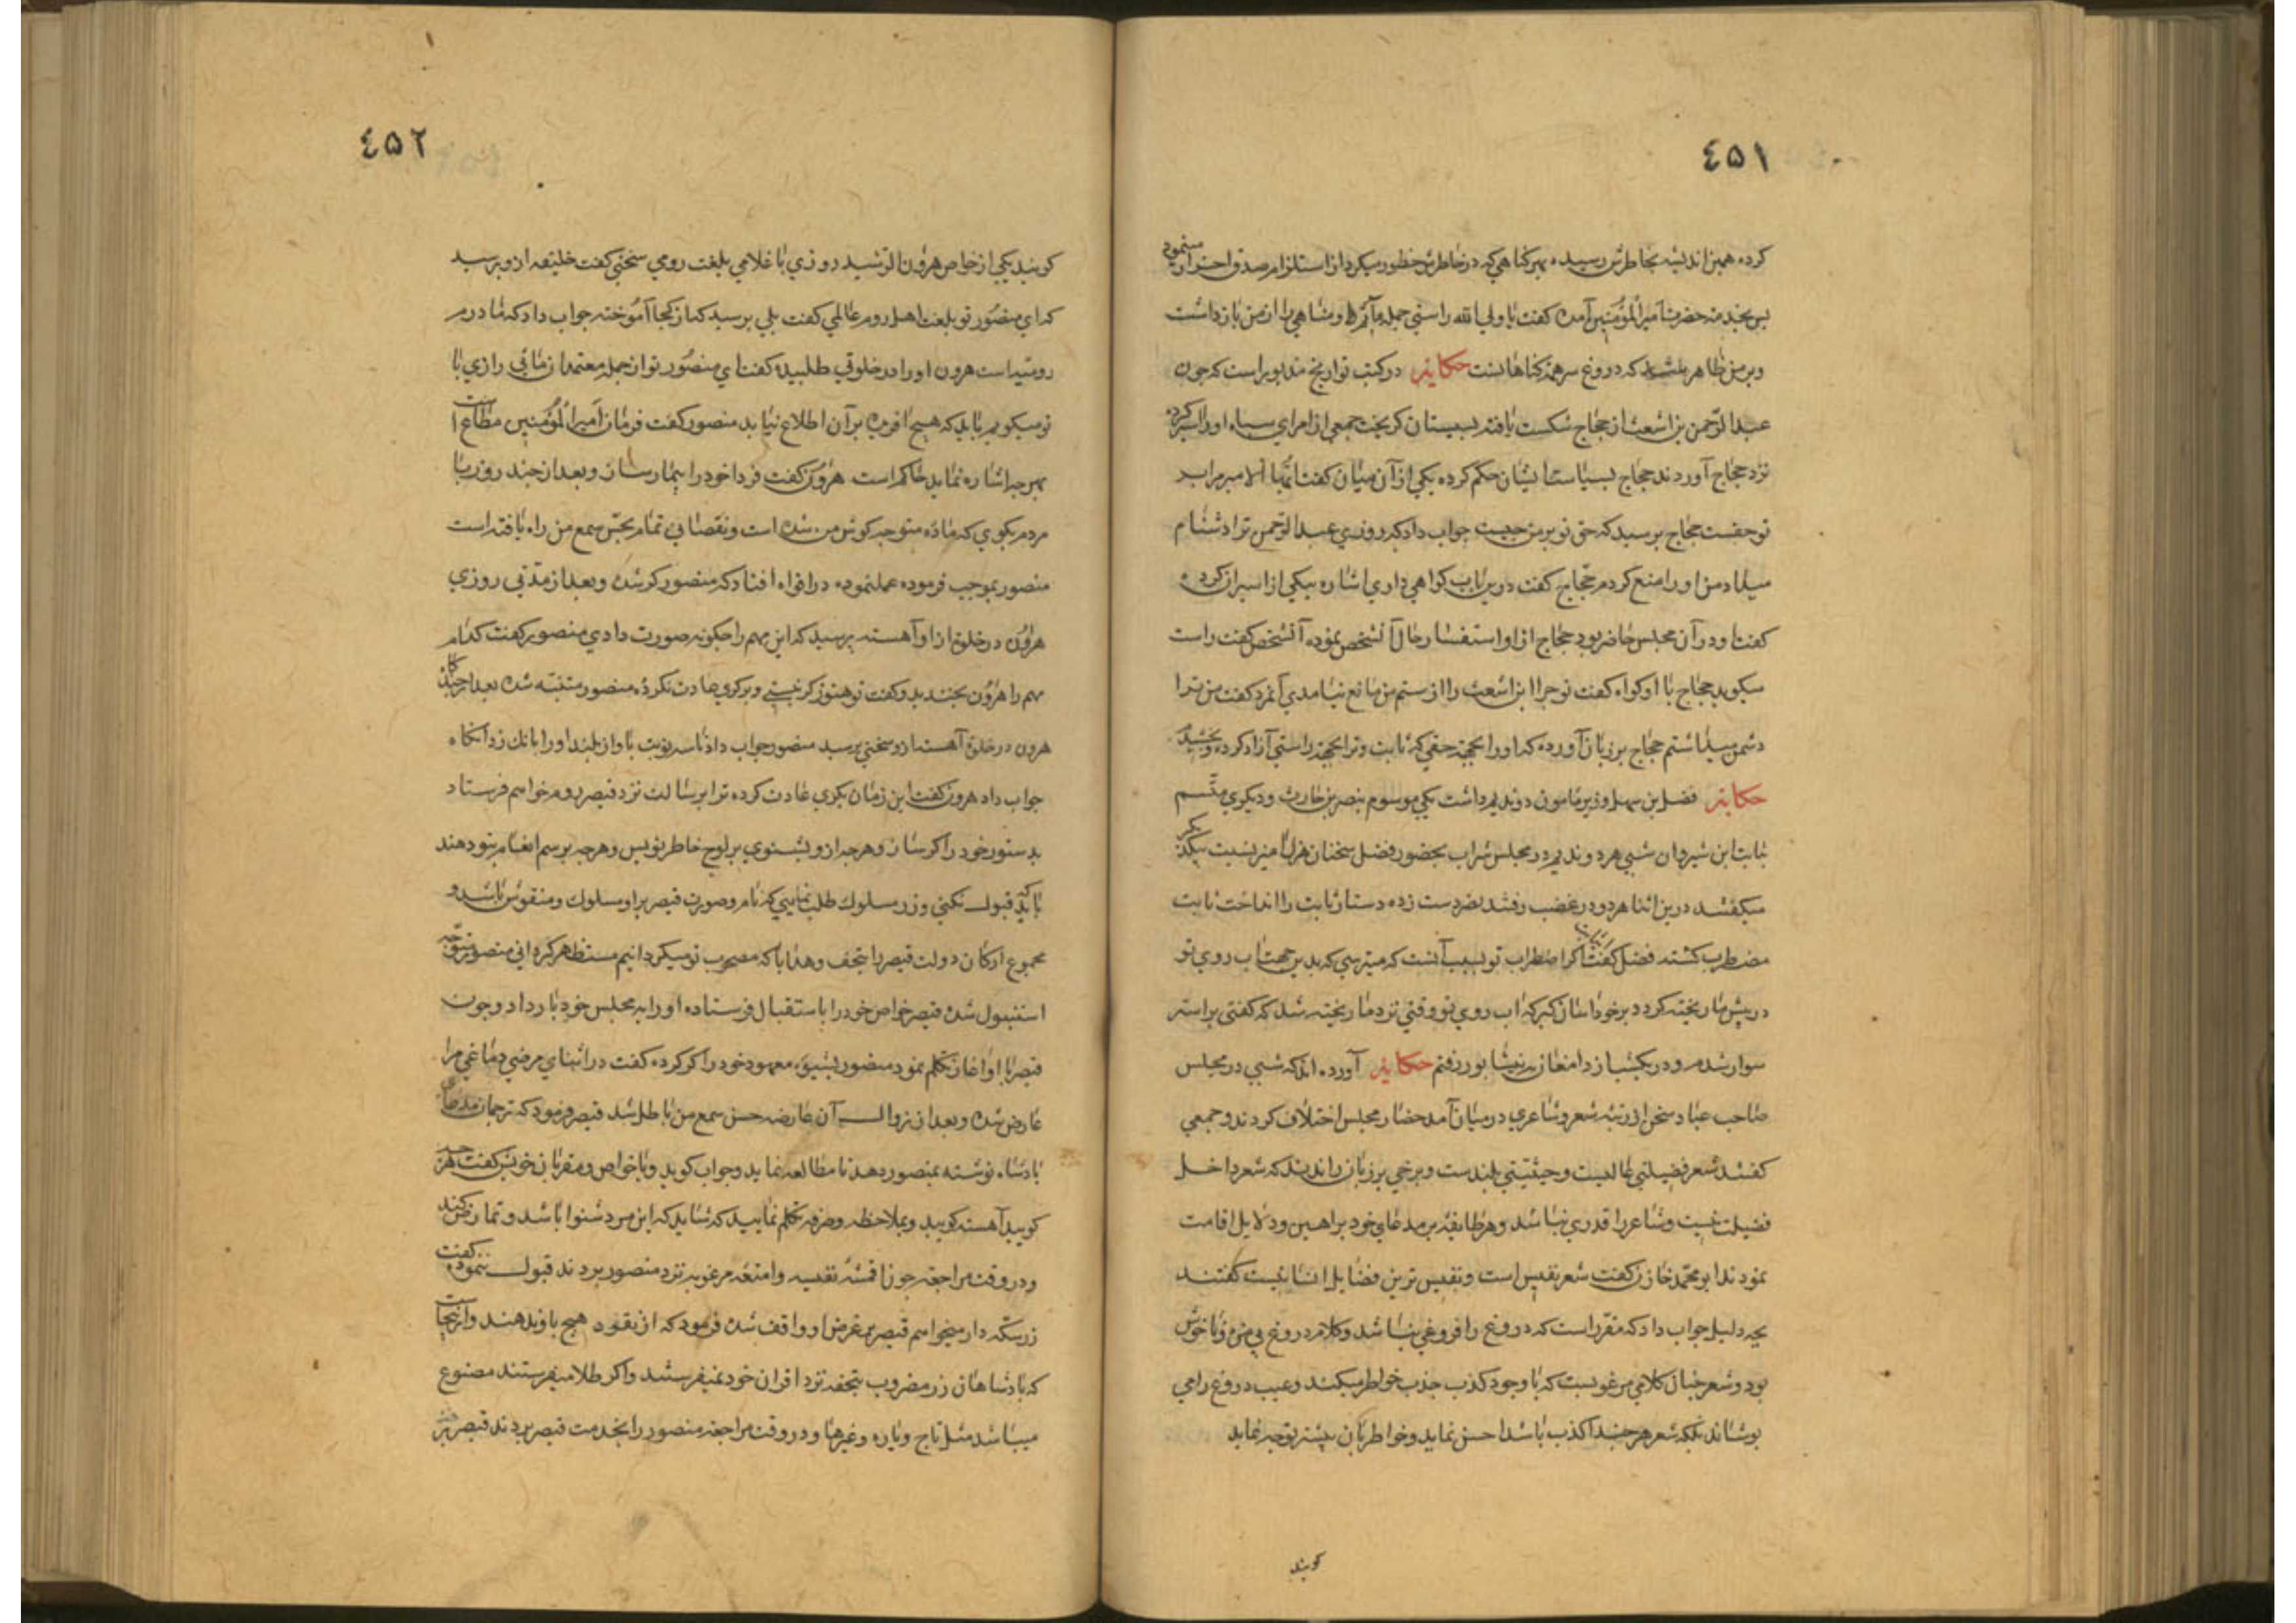 ٤۵۱
كرده همين انديشه بخاطرش رسيده بهر كناهي كه در خاطرش خطور ميكرد از استلزام صدق احتراز مينمود
پس بخدمت حضرت اميرالمؤمنين آمده كفت يا ولي الله راستي جمله مآثم و مناهي را از من بازداشت
و بر من ظاهر شد كه دروغ سر همه كناهانست حكايت در كتب تواريخ مذبور است كه چون
عبدالرّحمن بن اشعث از حجاج شكست يافته بسيستان كريخت جمعي از امراي سپاه او را اسير كرده
نزد حجاج آوردند حجاج بسياست ايشان حكم كرده يكي از آن ميان كفت ايّها الامير مرا بر
تو حقست حجاج پرسيد كه حق تو بر من چيست جواب داد كه روزي عبدالرّحمن ترا دشنام
ميداد من او را منع كردم حجّاج كفت درين باب كواهي داري اشاره بيكي از اسيران كرده
كفت او در آن مجلس حاضر بود حجاج از او استفسار حال آنشخص نموده آنشخص كفت راست
ميكويد حجاج با او كواه كفت تو چرا ابن اشعث را از ستم من مانع نيامدي آنمرد كفت من ترا
دشمن ميداشتم حجاج بر زبان آورده كه او را بجهة حقي كه ثابت و ترا بجهة راستي آزاد كرده و بخشيد
حكايت فضل بن سهل وزير مامون دو نديم داشت يكي موسوم بنصر بن حارث و ديكري متّسم
بثابت ابن شيروان شبي هر دو نديم در مجلس شراب بحضور فضل سخنان هزل آميز نسبت بيكديكر
ميكفتند درين اثنا هر دو در غضب رفتند نصر دست زده دستار ثابت را انداخت ثابت
مضطرب كشته فضل كفت اكر اضطراب تو بسبب آنست كه ميترسي كه بدين جهت آب روي تو
در پيش ما ريخته كردد بر خود آسان كير كه آب روي تو وقتي نزد ما ريخته شد كه كفتي بر استر
سوار شدم و در يكشب از دامغان به نيشابور رفتم حكايت آورده اند كه شبي در مجلس
صاحب عباد سخن از رتبه شعر و شاعري در ميان آمد حضار مجلس اختلاف كردند و جمعي
كفتند شعر فضيلتي عاليست و حيثيتي بلندست و برخي بر زبان راندند كه شعر داخل
فضيلت نيست و شاعر را قدري نباشد و هر طايفه بر مدعاي خود براهين و دلايل اقامت
نمودند ابو محمّد خازن كفت شعر نفيس است و نفيس ترين فضايل انسانيست كفتند
بچه دليل جواب داد كه مقرّر است كه دروغ را فروغي نباشد و كلام دروغ بي مزه و ناخوش
بود و شعر چنان كلامي مرغوبست كه با وجود كذب جذب خواطر ميكند و عيب دروغ را مي
پوشاند بلكه شعر هر چند اكذب باشد احسن نمايد و خواطر بان بيشتر توجه نمايد
كويند
٤۵۲
كويند يكي از خواص هرون الرّشيد روزي با غلامي بلغت رومي سخني كفت خليفه ازو پرسيد
كه اي منصور تو بلغت اهل روم عالمي كفت بلي پرسيد كه از كجا آموخته جواب داد كه مادرم
روميه است هرون او را در خلوتي طلبيده كفت اي منصور تو از جمله معتمدان مائي رازي با
تو ميكويم بايد كه هيچ آفريده بر آن اطلاع نيابد منصور كفت فرمان اميرالمؤمنين مطاع است
بهر چه اشاره نمايد حاكم است هرون كفت فردا خود را بيمار ساز و بعد از چند روز با
مردم بكوي كه ماده متوجه كوش من شده است و نقصاني تمام بحس سمع من راه يافته است
منصور بموجب فرموده عمل نموده در افواه افتاد كه منصور كر شده و بعد از مدّتي روزي
هرون در خلوة از او آهسته پرسيد كه اين مهم را چكونه صورت دادي منصور كفت كدام
مهم را هرون بخنديد و كفت تو هنوز كر نيستي و بر كري عادت نكرده منصور متنبّه شده بعد از چندكاه
هرون در خلوة آهسته ازو سخني پرسيد منصور جواب نداد تا سه نوبت با واز بلند او را بانك زد آنكاه
جواب داد هرون كفت اين زمان بكري عادت كرده ترا برسالت نزد قيصر روم خواهم فرستاد
بدستور خود را كر ساز و هر چه ازو بشنوي بر لوح خاطر نويس و هر چه برسم انعام بتو دهند
بايد كه قبول نكني و زر مسلوك طلب نمايي كه نام و صورت قيصر بر او مسلوك و منقوش باشد و
مجموع اركان دولت قيصر را بتحف و هدايا كه مصحوب تو ميكردانيم مستظهر كرداني منصور متوجه
استنبول شده قيصر خواص خود را باستقبال فرستاده او را به مجلس خود بار داد و چون
قيصر با او آغاز تكلم نمود منصور بشيوه معهود خود را كر كرده كفت در اثناي مرضي دماغي مرا
عارض شده و بعد از زوال آن عارضه حس سمع من باطل شد قيصر فرمود كه ترجمان مدعاي
پادشاه نوشته بمنصور دهد تا مطالعه نمايد و جواب كويد و با خواص و مقربان خويش كفت هر چه
كوييد آهسته كوييد و بملاحظه و صرفه تكلم نماييد كه شايد كه اين مرد شنوا باشد و تمارض كند
و در وقت مراجعت چون اقمشه نفيسه و امتعه مرغوبه نزد منصور بردند قبول ننموده كفت
زر سكّه دار ميخواهم قيصر بر غرض او واقف شده فرمود كه از نقود هيچ باو ندهند و از ينجاست
كه پادشاهان زر مضروب بتحفه نزد اقران خود نميفرستند و اكر طلا ميفرستند مصنوع
ميباشد مثل تاج و ياره و غيرها و در وقت مراجعت منصور را بخدمت قيصر بردند قيصر